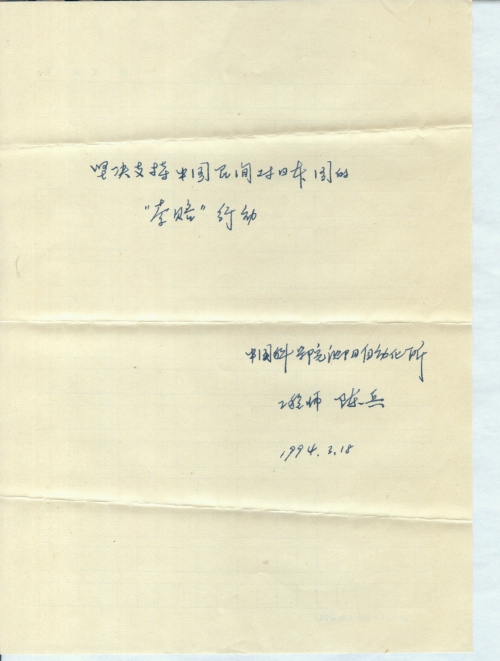 坚决支持中国民间对日本国的
“索赔”行动
中国科学院沈阳自动化所
工程师 陈兵
1994.3.18